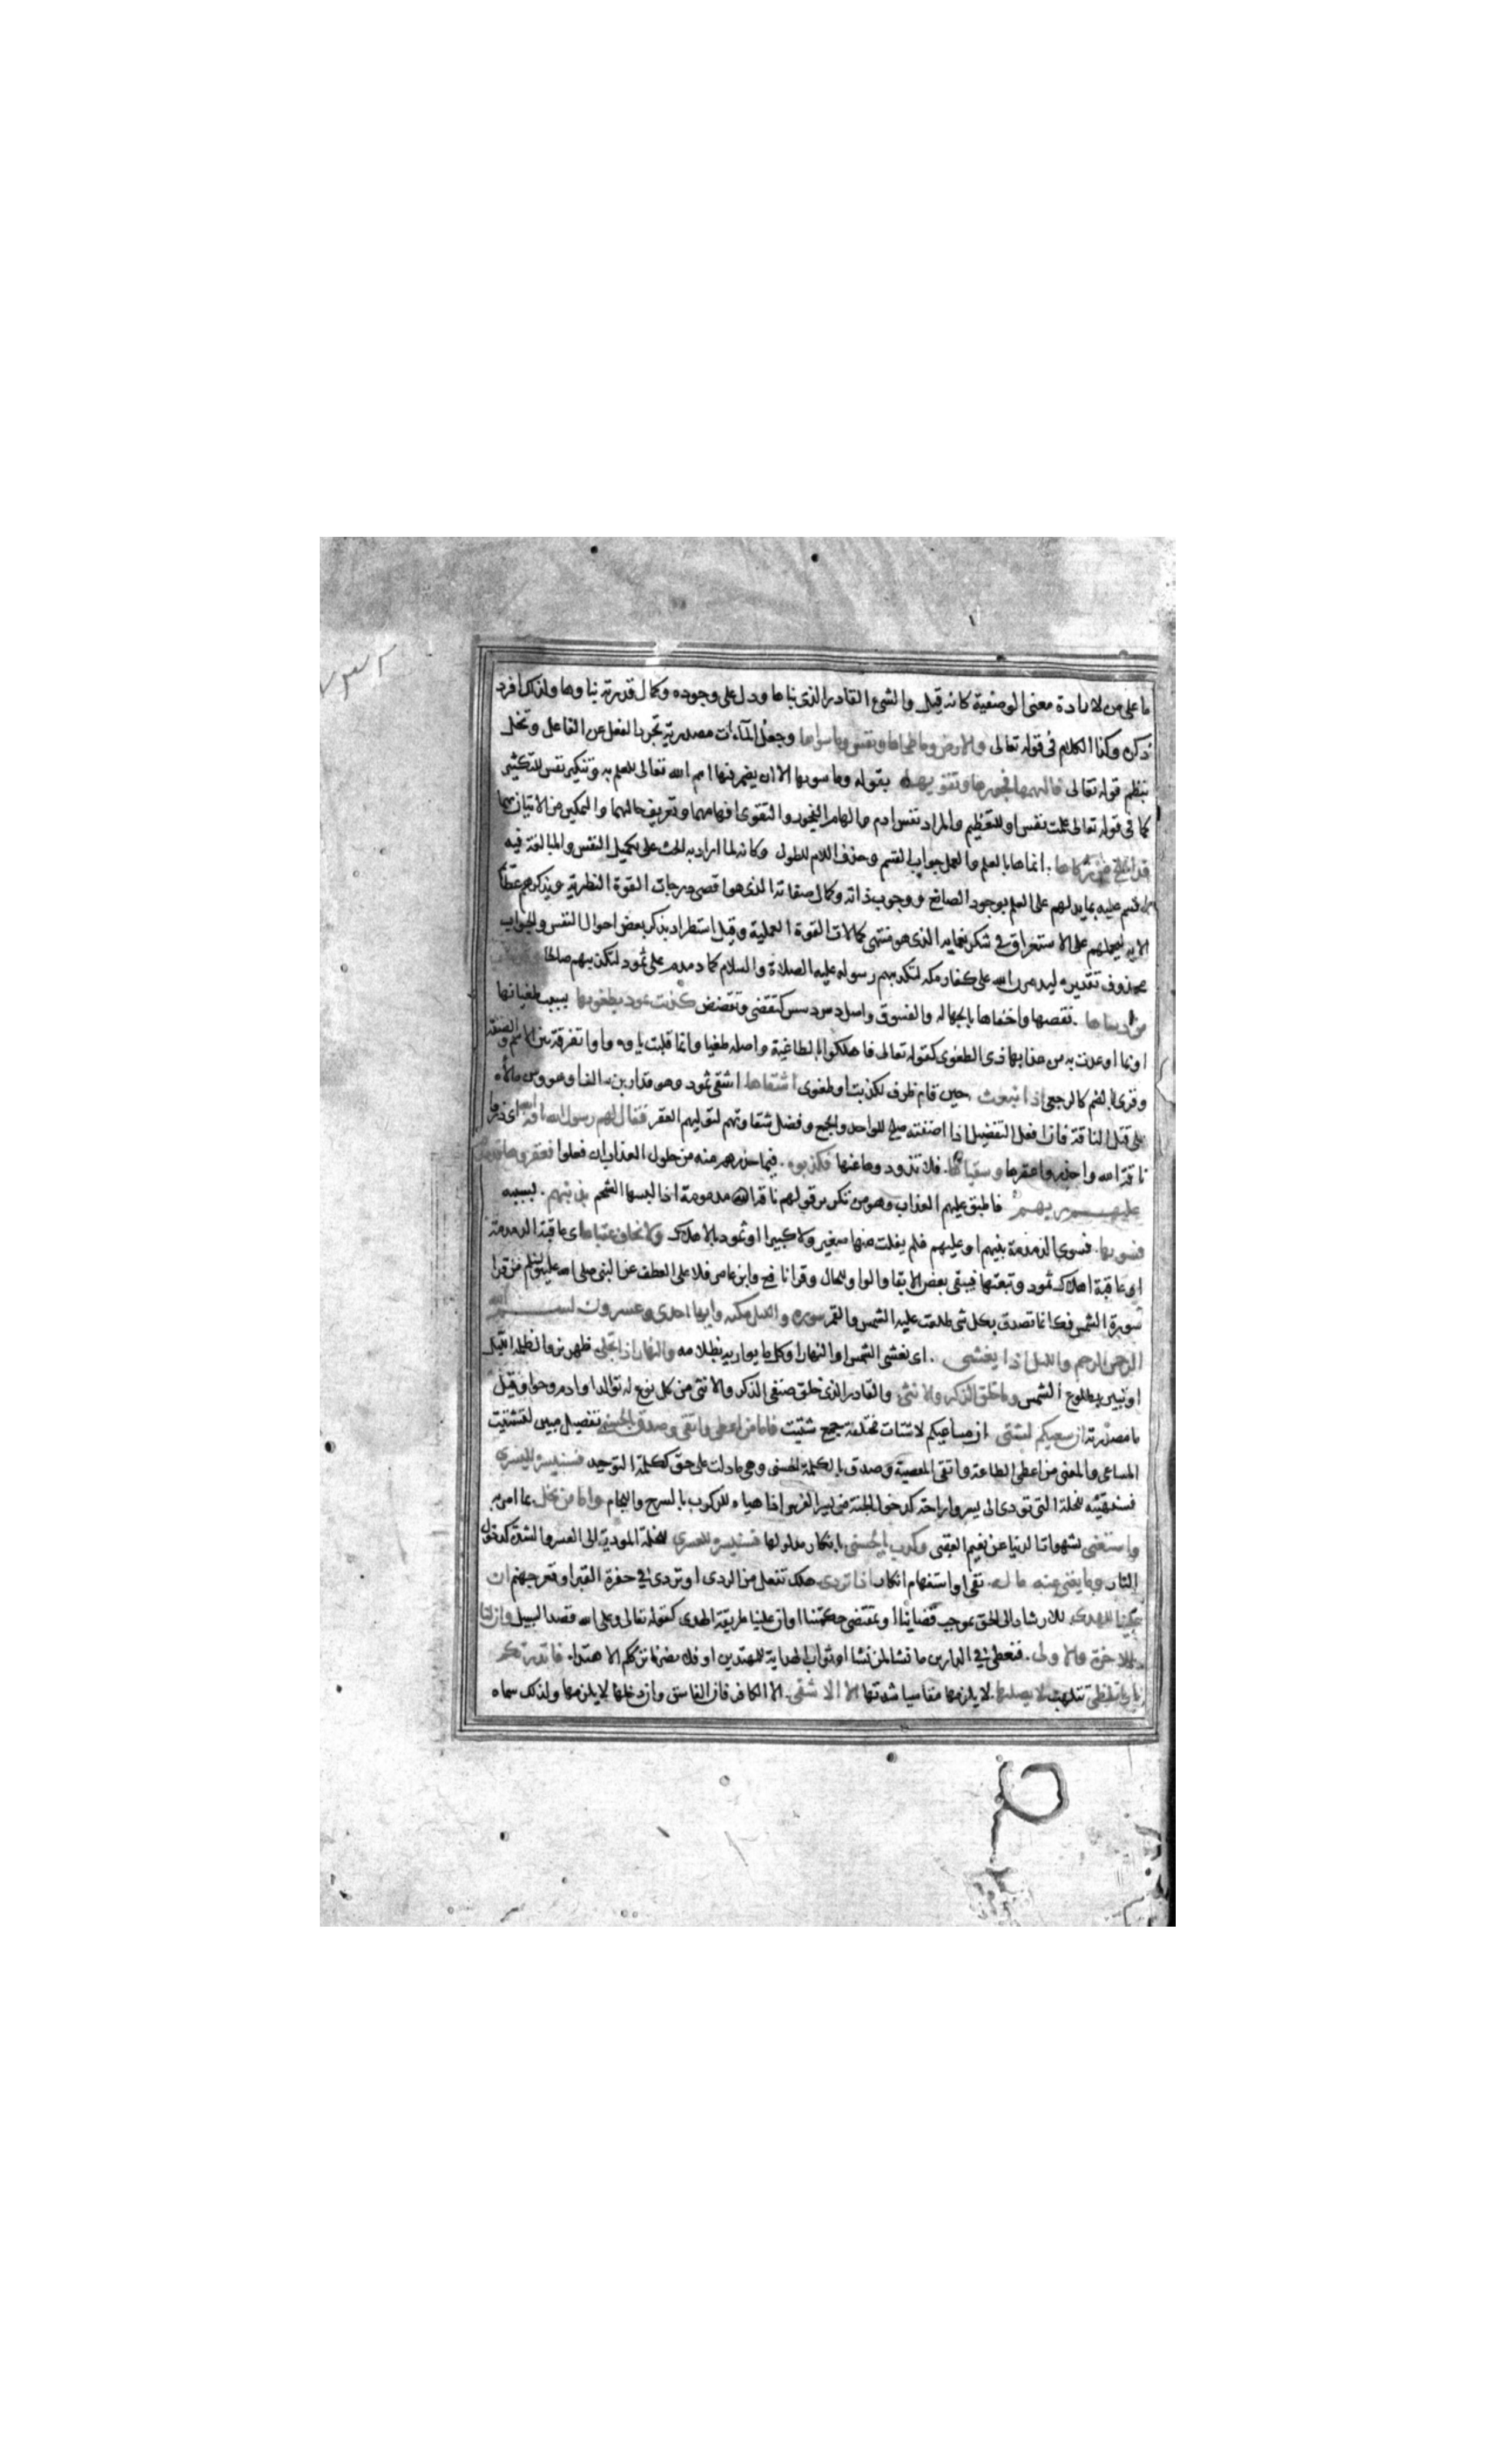 ما على من لارادة معنى الوصفية كانه قيل والشئ القادر الذى بناها ودل على وجوده وكمال قدرته بناوها ولذلك افرد
ذكره وكذا الكلام فى قوله تعالى والارض وما طحاها ونفس وما سواها وجعل المآءات مصدرية تجرد الفعل عن الفاعل وتخل
بنظم قوله تعالى فالهمها فجورها وتقويها بقوله وما سويها الا ان يضمر فيها اسم الله تعالى للعلم به وتنكير نفس للتكثير
كما فى قوله تعالى علمت نفس او للتعظيم والمراد نفس ادم والهام الفجور والتقوى افهامهما وتعريف حالهما والتمكين من الاتيان بهما
قد افلح من زكاها . انماها بالعلم والعمل جواب القسم وحذف اللام للطول وكانه لما اراد به الحث على تكميل النفس والمبالغة فيه
اقسم عليه بما يدلهم على العلم بوجود الصانع ووجوب ذاته وكمال صفاته الذى هو اقصى درجات القوة النظرية ويذكرهم عظائم
الايه ليحملهم على الاستغراق فى شكر نعمايه الذى هو منتهى كمالات القوة العملية وقيل استطراد بذكر بعض احوال النفس والجواب
محذوف تقديره ليدمدمن الله على كفار مكه لتكذيبهم رسوله عليه الصلاة والسلام كما دمدم على ثمود لتكذيبهم صالحا وقد خاب
من دساها . نقصها واخفاها بالجهاله والفسوق واصل دس دسس كتقضى وتقضض كذبت ثمود بطغويها بسبب طغيانها
او بما اوعدت به من عذابها ذى الطغوى كقوله تعالى فاهلكوا بالطاغية واصله طغيا وانما قلبت ياوه واوا تفرقة بين الاسم والصفة
وقرئ بالضم كالرجعى اذ انبعث حين قام ظرف لكذبت او طغوى اشقاها اشقى ثمود وهو قدار بن سالف او هو ومن مالأه
على قتل الناقة فان افعل التفضيل اذا اضفته صلح للواحد والجمع وفضل شقاوتهم لتوليهم العقر فقال لهم رسول الله ناقة الله اى ذروا
ناقة الله واحذروا عقرها وسقياها . فلا تذودوها عنها فكذبوه . فيما حذرهم منه من حلول العذاب ان فعلوا فعقروها فدمدم
عليهم ربهم فاطبق عليهم العذاب وهو من تكرير قولهم ناقة مدمومة اذا البسها الشحم بذنبهم . بسببه
فسويها . فسوى الدمدمة بينهم او عليهم فلم يفلت منها صغير ولا كبير او ثمود بالاهلاك ولا يخاف عقباها اى عاقبة الدمدمة
او عاقبة اهلاك ثمود وتبعتها فيبقى بعض الابقا والواو للحال وقرا نافع وابن عامر فلا على العطف عن النبى صلى الله عليه وسلم من قرا
سورة الشمس فكانما تصدق بكل شى طلعت عليه الشمس والقمر سوره والليل مكيه وايها احدى وعشرون بسم الله
الرحمن الرحيم والليل اذا يغشى . اى يغشى الشمس او النهار او كل ما يواريه بظلامه والنهار اذا تجلى ظهر بزوال ظلمة الليل
او تبين بطلوع الشمس وما خلق الذكر والانثى والقادر الذى خلق صنفى الذكر والانثى من كل نوع له توالد او ادم وحوا وقيل
ما مصدرية ان سعيكم لشتى ان مساعيكم لاشتات مختلفة جمع شتيت فاما من اعطى واتقى وصدق بالحسنى تفصيل مبين لتشتيت
المساعى والمعنى من اعطى الطاعة واتقى المعصية وصدق بالكلمة الحسنى وهى ما دلت على حق ككلمة التوحيد فسنيسره لليسرى
فسنهيئه للخلة التى تودى الى يسر وراحة كدخول الجنة من يسر الفرس اذا هياه للركوب بالسرج واللجام واما من بخل بما امر به
واستغنى بشهوات الدنيا عن نعيم العقبى وكذب بالحسنى بانكار مدلولها فسنيسره للعسرى للخلة المودية الى العسر والشدة كدخول
النار وما يغنى عنه ماله . نفى او استفهام انكار اذا تردى هلك تفعل من الردى او تردى فى حفرة القبر او قعر جهنم ان
علينا للهدى للارشاد الى الحق بموجب قضاينا او بمقتضى حكمتنا او ان علينا طريقة الهدى كقوله تعالى وعلى الله قصد السبيل وان لنا
للاخرة والاولى . فنعطى فى الدارين ما نشا لمن نشا او ثواب الهداية للمهتدين او فلا يضرنا ترككم الاهتدا . فانذرتكم
نارا تلظى تتلهب لا يصلاها لا يلزمها مقاسيا شدتها الا الاشقى . الا الكافر فان الفاسق وان دخلها لا يلزمها ولذلك سماه